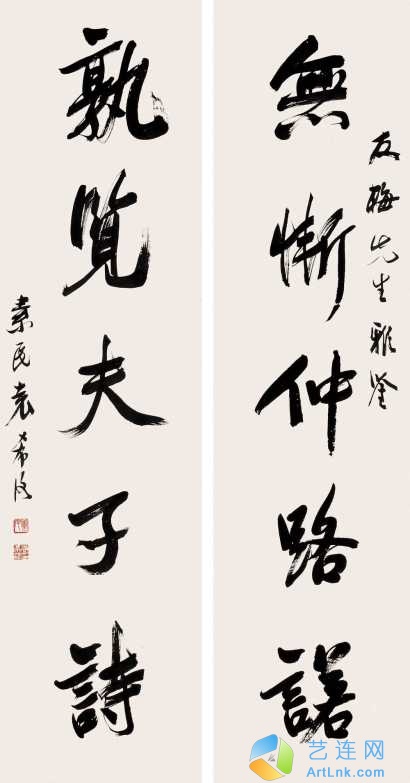 友梅先生雅鑒
無慚仲路諾
孰覧夫子詩
素民袁希洛
艺连网
ArtLnk.com